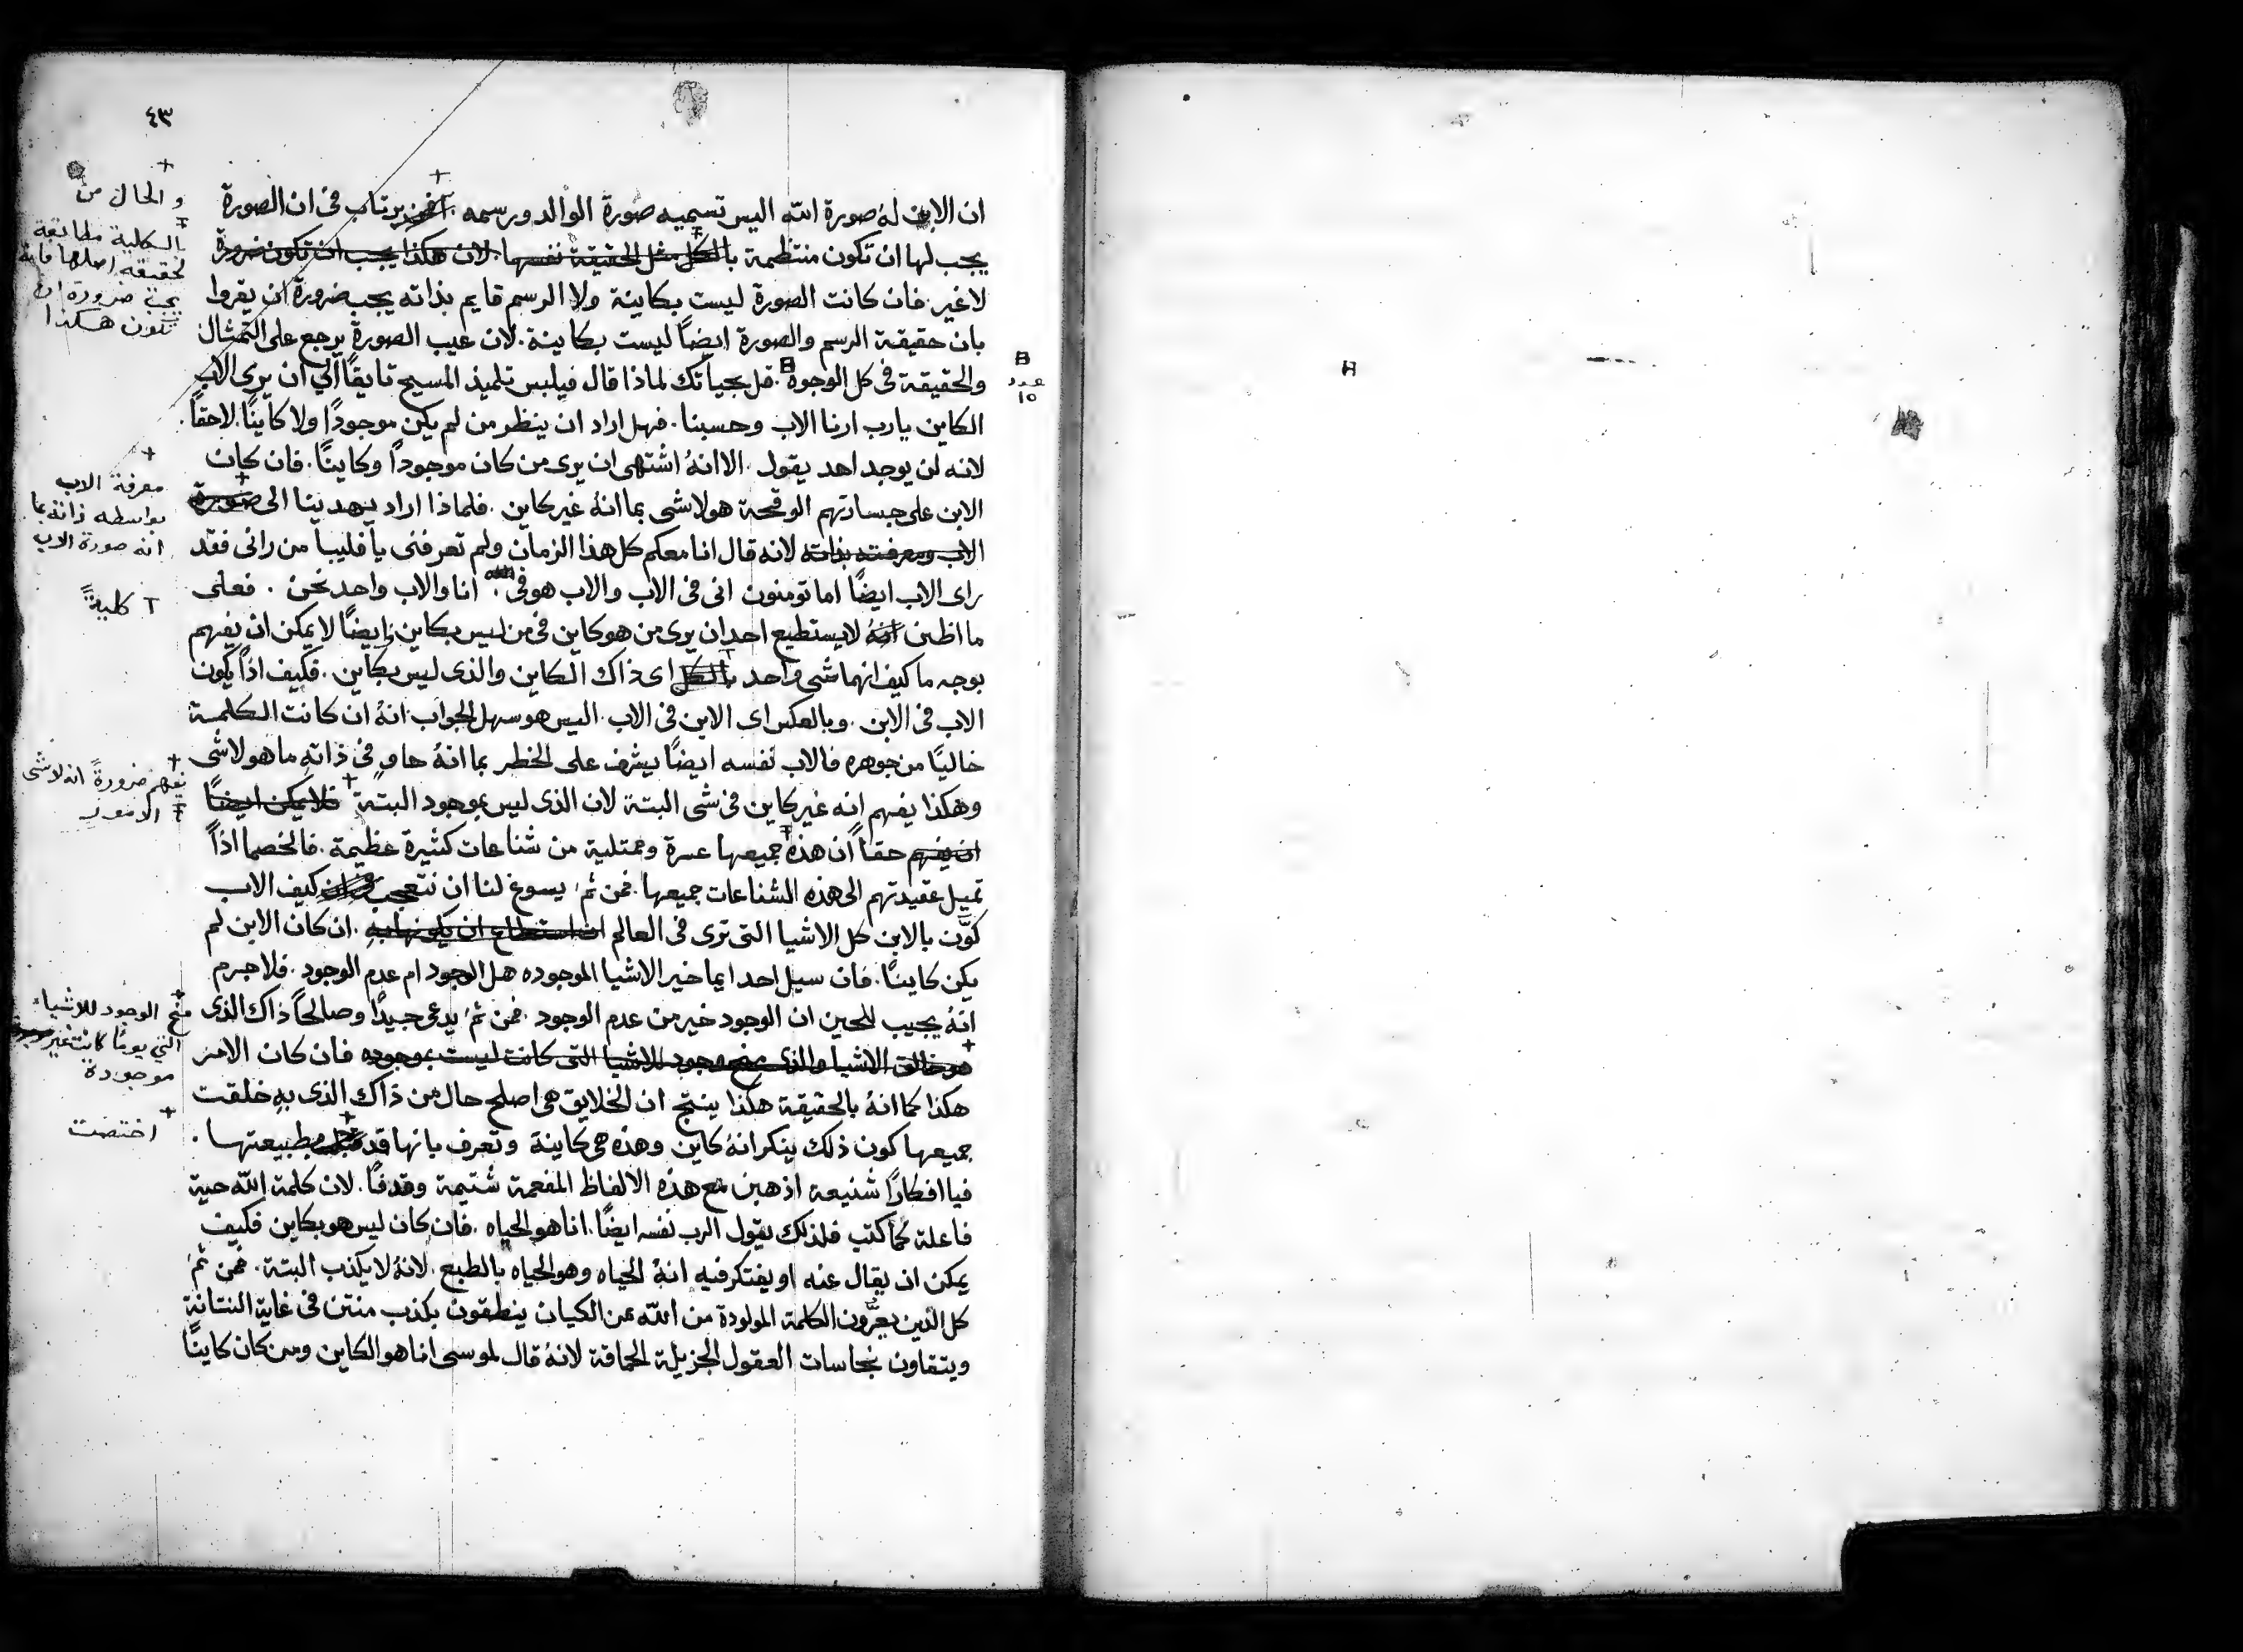 ٤٣
ان الابن له صورة الله اليس تسميه صورة الوالد ورسمه . افمن يرتاب فى ان الصورة
يجب لها ان تكون منتظمة بالكل مثل الحقيقة نفسها . لان هكذا يجب ان تكون ضرورة
لاغير . فان كانت الصورة ليست بكاينة ولا الرسم قايم بذاته يجب ضرورة ان يقروا
بان حقيقة الرسم والصورة ايضاً ليست بكاينة . لان عيب الصورة يرجع على التمثال
والحقيقة فى كل الوجوه . قل بحياتك لماذا قال فيلبس تلميذ المسيح تايقاً الى ان يرى الاب
الكاين يارب ارنا الاب وحسبنا . فهل اراد ان ينظر من لم يكن موجوداً ولا كايناً . لاحقاً .
لانه لن يوجد احد يقول . الا انهُ اشتهى ان يرى من كان موجوداً وكايناً . فان كان
الابن على جسارتهم الوقحة هو لا شى بما انهُ غير كاين . فلماذا اراد يهدينا الى صورة
الاب ومعرفته بذاته لانه قال انا معكم كل هذا الزمان ولم تعرفنى يا فليبا من رانى فقد
راى الاب ايضاً اما تومنون انى فى الاب والاب هو فى . انا والاب واحد نحن . فعلى
ما اظن انهُ لا يستطيع احد ان يرى من هو كاين فى من ليس بكاين وايضاً لا يمكن ان يفهم
بوجه ما كيف انهما شى واحد بالكل اى ذاك الكاين والذى ليس بكاين . فكيف اذاً يكون
الاب فى الابن . وبالعكس اى الابن فى الاب . اليس هو سهل الجواب انهُ ان كانت الكلمة
خالياً من جوهره فالاب نفسه ايضاً يشرف على الخطر بما انهُ حاوٍ فى ذاته ما هو لا شى
وهكذا يفهم انه غير كاين فى شى البتة لان الذى ليس بموجود البتة فلا يمكن ايضاً
ان يفهم حقاً ان هذه جميعها عسرة وممتلية من شناعات كثيرة عظيمة . فالخصما اذاً
تميل عقيدتهم الى هذه الشناعات جميعها . فمن ثمَ يسوغ لنا ان نتعجب كيف الاب
كوَّن بالابن كل الاشيا التى ترى فى العالم ان استطاع ان يكونها به . ان كان الابن لم
يكن كايناً . فان سيل احد ايما خير الاشيا الموجوده هل الوجود ام عدم الوجود . فلا جرم
انهُ يجيب للحين ان الوجود خير من عدم الوجود . فمن ثمَ يدعى جيداً وصالحاً ذاك الذى
هو خالق الاشيا والذى منح وجود للاشيا التى كانت ليست بموجوده فان كان الامر
هكذا كما انهُ بالحقيقة هكذا ينتج ان الخلايق هى اصلح حال من ذاك الذى بهِ خلقت
جميعها كون ذلك ينكر انهُ كاين وهذه هى كاينة وتعرف بانها قد بطبيعتها .
فيا افكاراً شنيعة اذهبن مع هذه الالفاظ المفعمة شتيمة وقدفاً . لان كلمة الله حية
فاعلة كما كتب فلذلك يقول الرب نفسه ايضاً . انا هو الحياه . فان كان ليس هو بكاين فكيف
يمكن ان يقال عنه او يفتكر فيه انهُ الحياه وهو الحياه بالطبع . لانهُ لا يكذب البتة . فمن ثمَ
كل الذين يعرَّون الكلمة المولودة من الله من الكيان ينطقون بكذب منتن فى غاية النتانة
ويتقاون نجاسات العقول الجزيلة الحماقة لانهُ قال لموسى انا هو الكاين ومن كان كايناً
والحال من
الكلية مطابقة
لحقيقة اصلها فانه
يجب ضرورة ان
تكون هكذا
عدد
١٥
معرفة الاب
بواسطه ذاته بما
انه صورة الاب
كليةً
يفهم ضرورةً انه لا شى
الامور
منح الوجود للاشياء
التي يوماً كانت غير
موجودة
اختصت